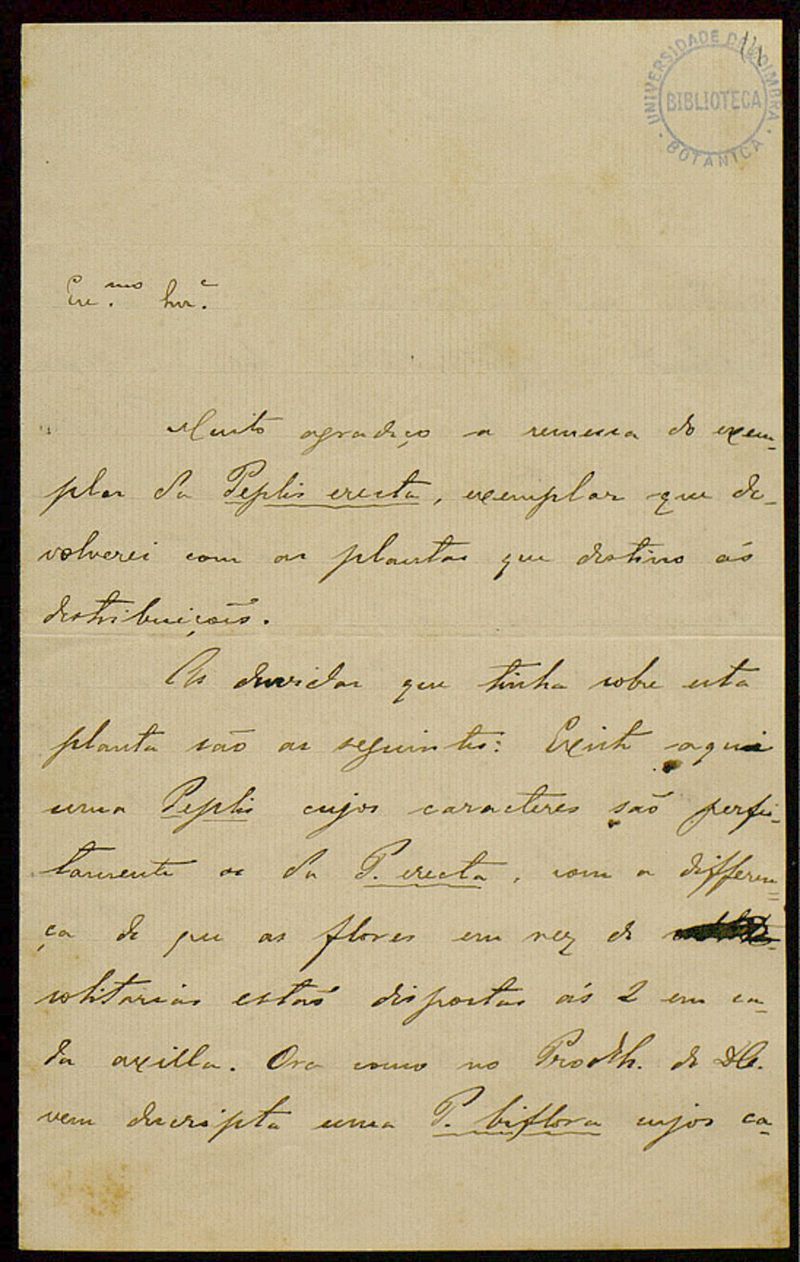 UNIVERSIDADE DE COIMBRA
BIBLIOTECA
BOTANICA
Ex.mo Snr.
Muito agradeço a remessa do exem-
plar da Peplis erecta, exemplar que de-
volverei com as plantas que destino ás
distribuições.
As duvidas que tinha sobre esta
planta são as seguintes: Existe aqui
uma Peplis cujos caracteres são perfei-
tamente os da P. erecta, com a differen-
ça de que as flores em vez de
solitarias estão dispostas ás 2 em ca-
da axilla. Ora como no de DC.
vem descripta uma P. biflora cujos ca-